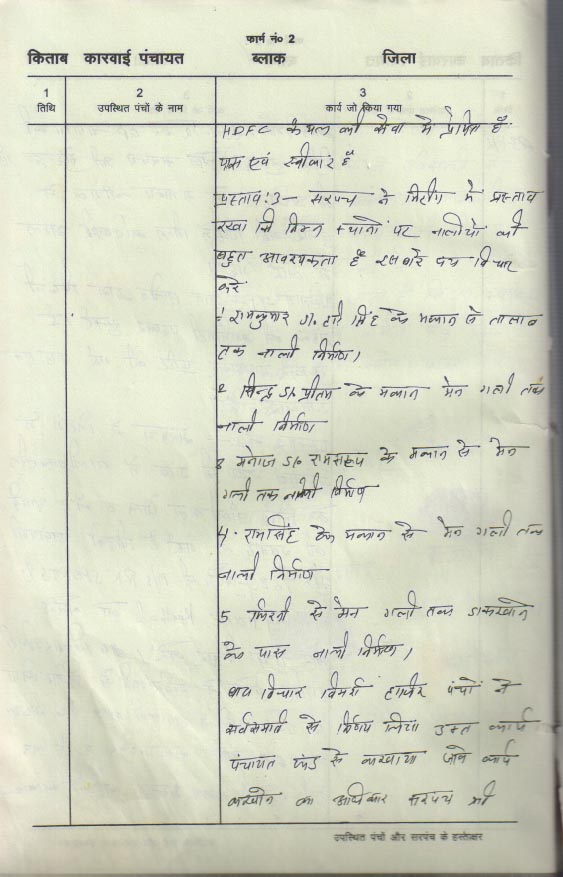 फार्म नं० 2
किताब कारवाई पंचायत ब्लाक जिला
1 2 3
तिथि उपस्थित पंचों के नाम कार्य जो किया गया
HDFC कैथल की सेवा में प्रेषित है
पास एवं स्वीकार है
प्रस्ताव:3- सरपंच ने मिटींग में प्रस्ताव
रखा कि निम्न स्थानों पर नालीयों की
बहुत आवश्यकता है इस बारे पंच विचार
करें
1 रामकुमार S/o हरि सिंह के मकान से तालाब
तक नाली निर्माण।
2 S/o प्रीतम के मकान मेन गली तक
नाली निर्माण
3 मनोज S/o रामसरूप के मकान से मेन
गली तक नाली निर्माण
4. रामसिंह के मकान से मेन गली तक
नाली निर्माण
5 से मेन गली तक डाकखाने
के पास नाली निर्माण।
बाद विचार विमर्श हाजिर पंचों ने
सर्वसम्मति से निर्णय लिया उक्त कार्य
पंचायत फंड से करवाया जावे कार्य
करवाने का अधिकार सरपंच को
उपस्थित पंचों और सरपंच के हस्ताक्षर